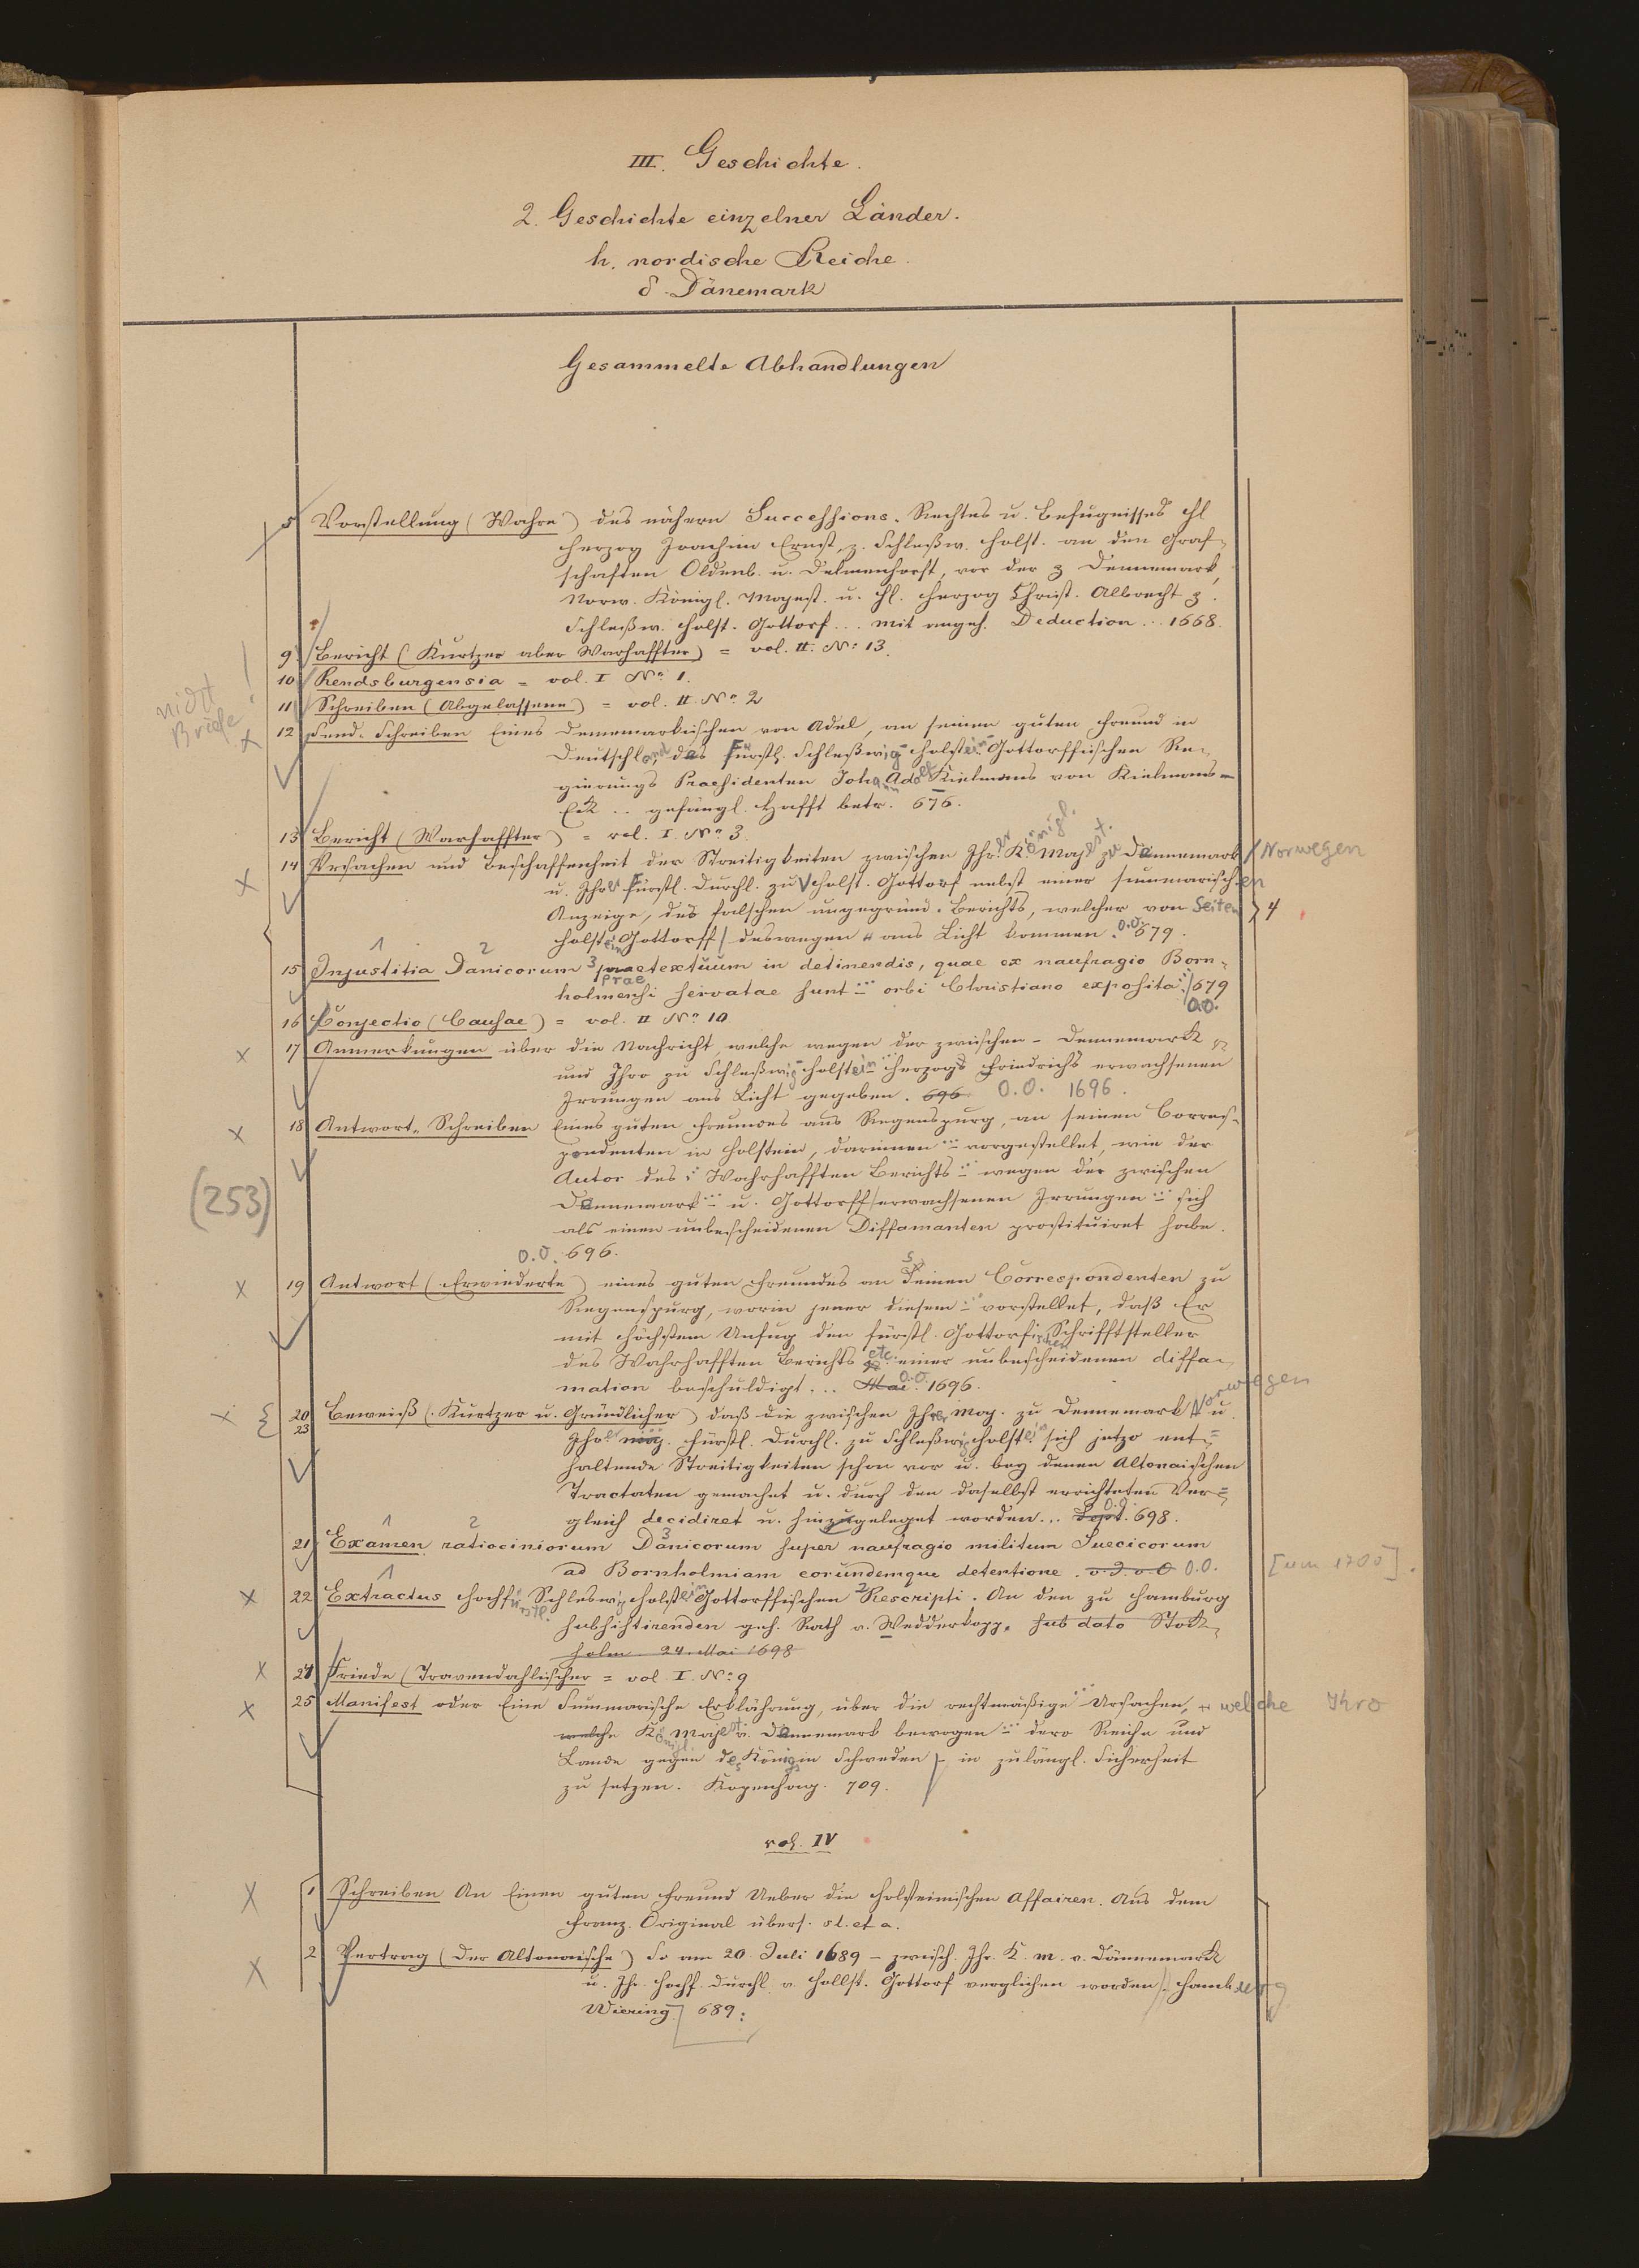 III. Geschichte.
2. Geschichte einzelner Länder.
h. nordische Reiche.
δ. Dänemark
Gesammelte Abhandlungen
5 Vorstellung (Wahre) des nähern Successions-Rechtes u. Befugnisses Hl
Herzog Joachim Ernst, z. Schleßw. Holst. an den Graf-
schaften Oldenb. u. Delmenhorst, vor der z Dennemark,
Norw. Königl. Majest. u. Hl. Herzog Christ. Albrecht z.
Schleßw. Holst. Gottorf... mit angeh. Deduction... 1668.
9 Bericht (Kurtzer aber Warhaffter) = vol. II. No: 13.
10 Rendsburgensia = vol. I No. 1.
11 Schreiben (Abgelassene) = vol. II. No. 2
nicht Briefe!
12 Send-Schreiben Eines Dennemarkischen von Adel, an seinen guten Freund in
Deutschland, das Fürstl. Schleßwig Holstein Gottorffischen Re-
gierungs Praesidenten Johann Adolf Kielmans von Kielmans-
Eck .. gefängl. Hafft betr. 676.
13 Bericht (Warhaffter) = vol. I. No. 3.
14 Ursachen und Beschaffenheit der Streitigkeiten zwischen Ihrer Königl. Majest. zu Dannemark / Norwegen
u. Ihrer Fürstl. Durchl. zu Holst. Gottorf nebst einer summarischen
Anzeige, des falschen ungegründ. Berichts, welcher von Seiten 4
Holstein Gottorff / deswegen ans Licht kommen. O.O. 679.
15 Injustitia Danicorum praetextuum in detinendis, quae ex naufragio Born-
holmensi servatae sunt ... orbi Christiano exposita. / 679
o.O.
16 Conjectio (Causae) = vol. II No. 10
17 Anmerkungen über die Nachricht, welche wegen der zwischen - Dennemark
und Ihro zu Schleßwig Holstein Herzogs Friedrichs erwachsenen
Irrungen ans Licht gegeben. 696 O.O. 1696.
18 Antwort-Schreiben Eines guten Freundes aus Regenspurg, an seinen Corres-
pondenten in Holstein, darinnen ... vorgestellet, wie der
Autor des: Wahrhafften Berichts ... wegen der zwischen
(253)
Dännemark ... u. Gottorff / erwachsenen Irrungen ... sich
als einen unbescheidenen Diffamanten prostituiret habe.
O.O. 696.
19 Antwort (Erwiederte) eines guten Freundes an seinen Correspondenten zu
Regenspurg, worin jener diesem ... vorstellet, daß Er
mit höchstem Unfug den fürstl. Gottorfischen Schrifftsteller
des Wahrhafften Berichts etc. einer unbescheidenen diffa-
mation beschuldigt... Mai. O.O. 1696.
20 23 Beweiß (Kurtzer u. Gründlicher) daß die zwischen Ihrer Maj. zu Dennemark Norwegen u.
Ihrer Maj. Fürstl. Durchl. zu Schleßwig Holstein sich jetzo ent-
haltende Streitigkeiten schon vor u. bey denen Altonaischen
Tractaten gemachet u. durch den daselbst errichteten Ver-
gleich decidiret u. hinzugeleget worden... Sept. O.O. 698.
21 Examen ratiociniorum Danicorum super naufragio militum Suecicorum
ad Bornholmiam eorundemque detentione. o.J. o.O O.O. [um 1700].
22 Extractus Hochfürstl. Schleswig Holstein Gottorffischen Rescripti. An den zu Hamburg
subsistirenden geh. Rath v. Wedderkopp. sub dato Stok-
holm 24. Mai 1698
24 Friede (Travendahlischer = vol. I. No. 9
25 Manifest oder Eine Summarische Erklährung, über die rechtmäßige Ursachen, + welche Ihro
welche Königl. Majest. v. Dännemark bewogen ... dero Reiche und
Lande gegen des Königs in Schweden / - in zulängl. Sicherheit
zu setzen. Kopenhag. 709.
vol. IV
1 Schreiben An Einen guten Freund Ueber die Holsteinischen Affairen. Aus dem
Franz. Original übers. sl. et a.
2 Vertrag (Der Altonaische) So am 20. Juli 1689 - zwisch. Ihr. K. M. v. Dännemark
u. Ihr. Hochf. Durchl. v. Hollst. Gottorf verglichen worden /. Hamburg
Wiering 689.